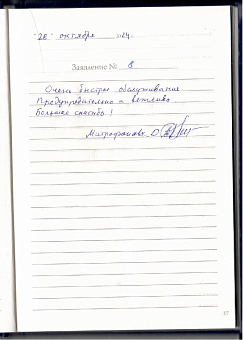 28 октября 2024.
Заявление № 8
Очень быстрое обслуживание
Предупредительно и вежливо
Большое спасибо!
Митрофанова О
17